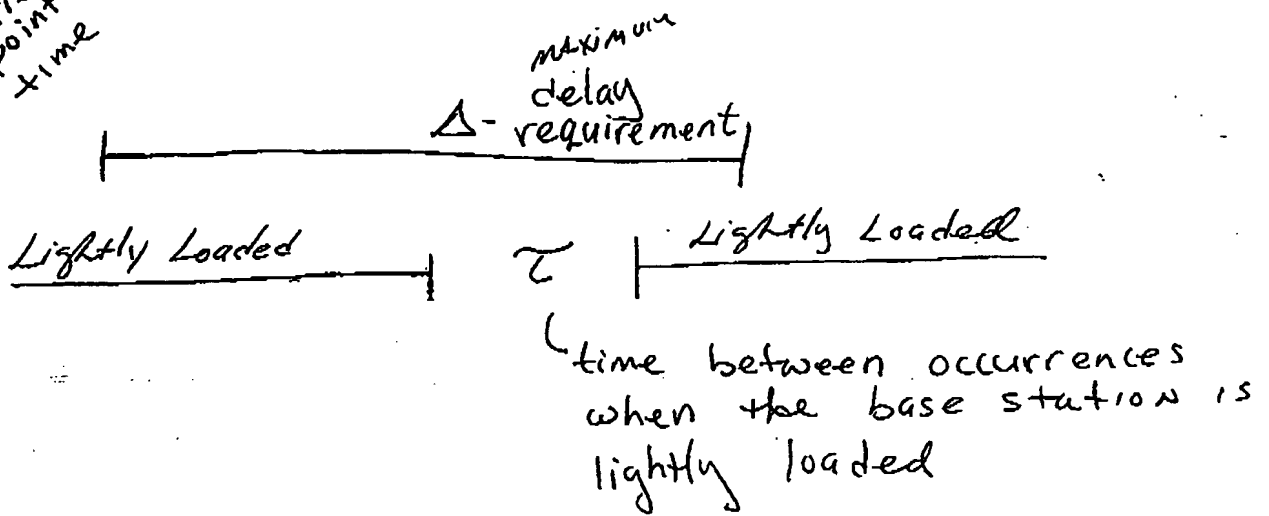 point
time
maximum
delay
Δ- requirement
Lightly Loaded τ Lightly Loaded
time between occurrences
when the base station is
lightly loaded